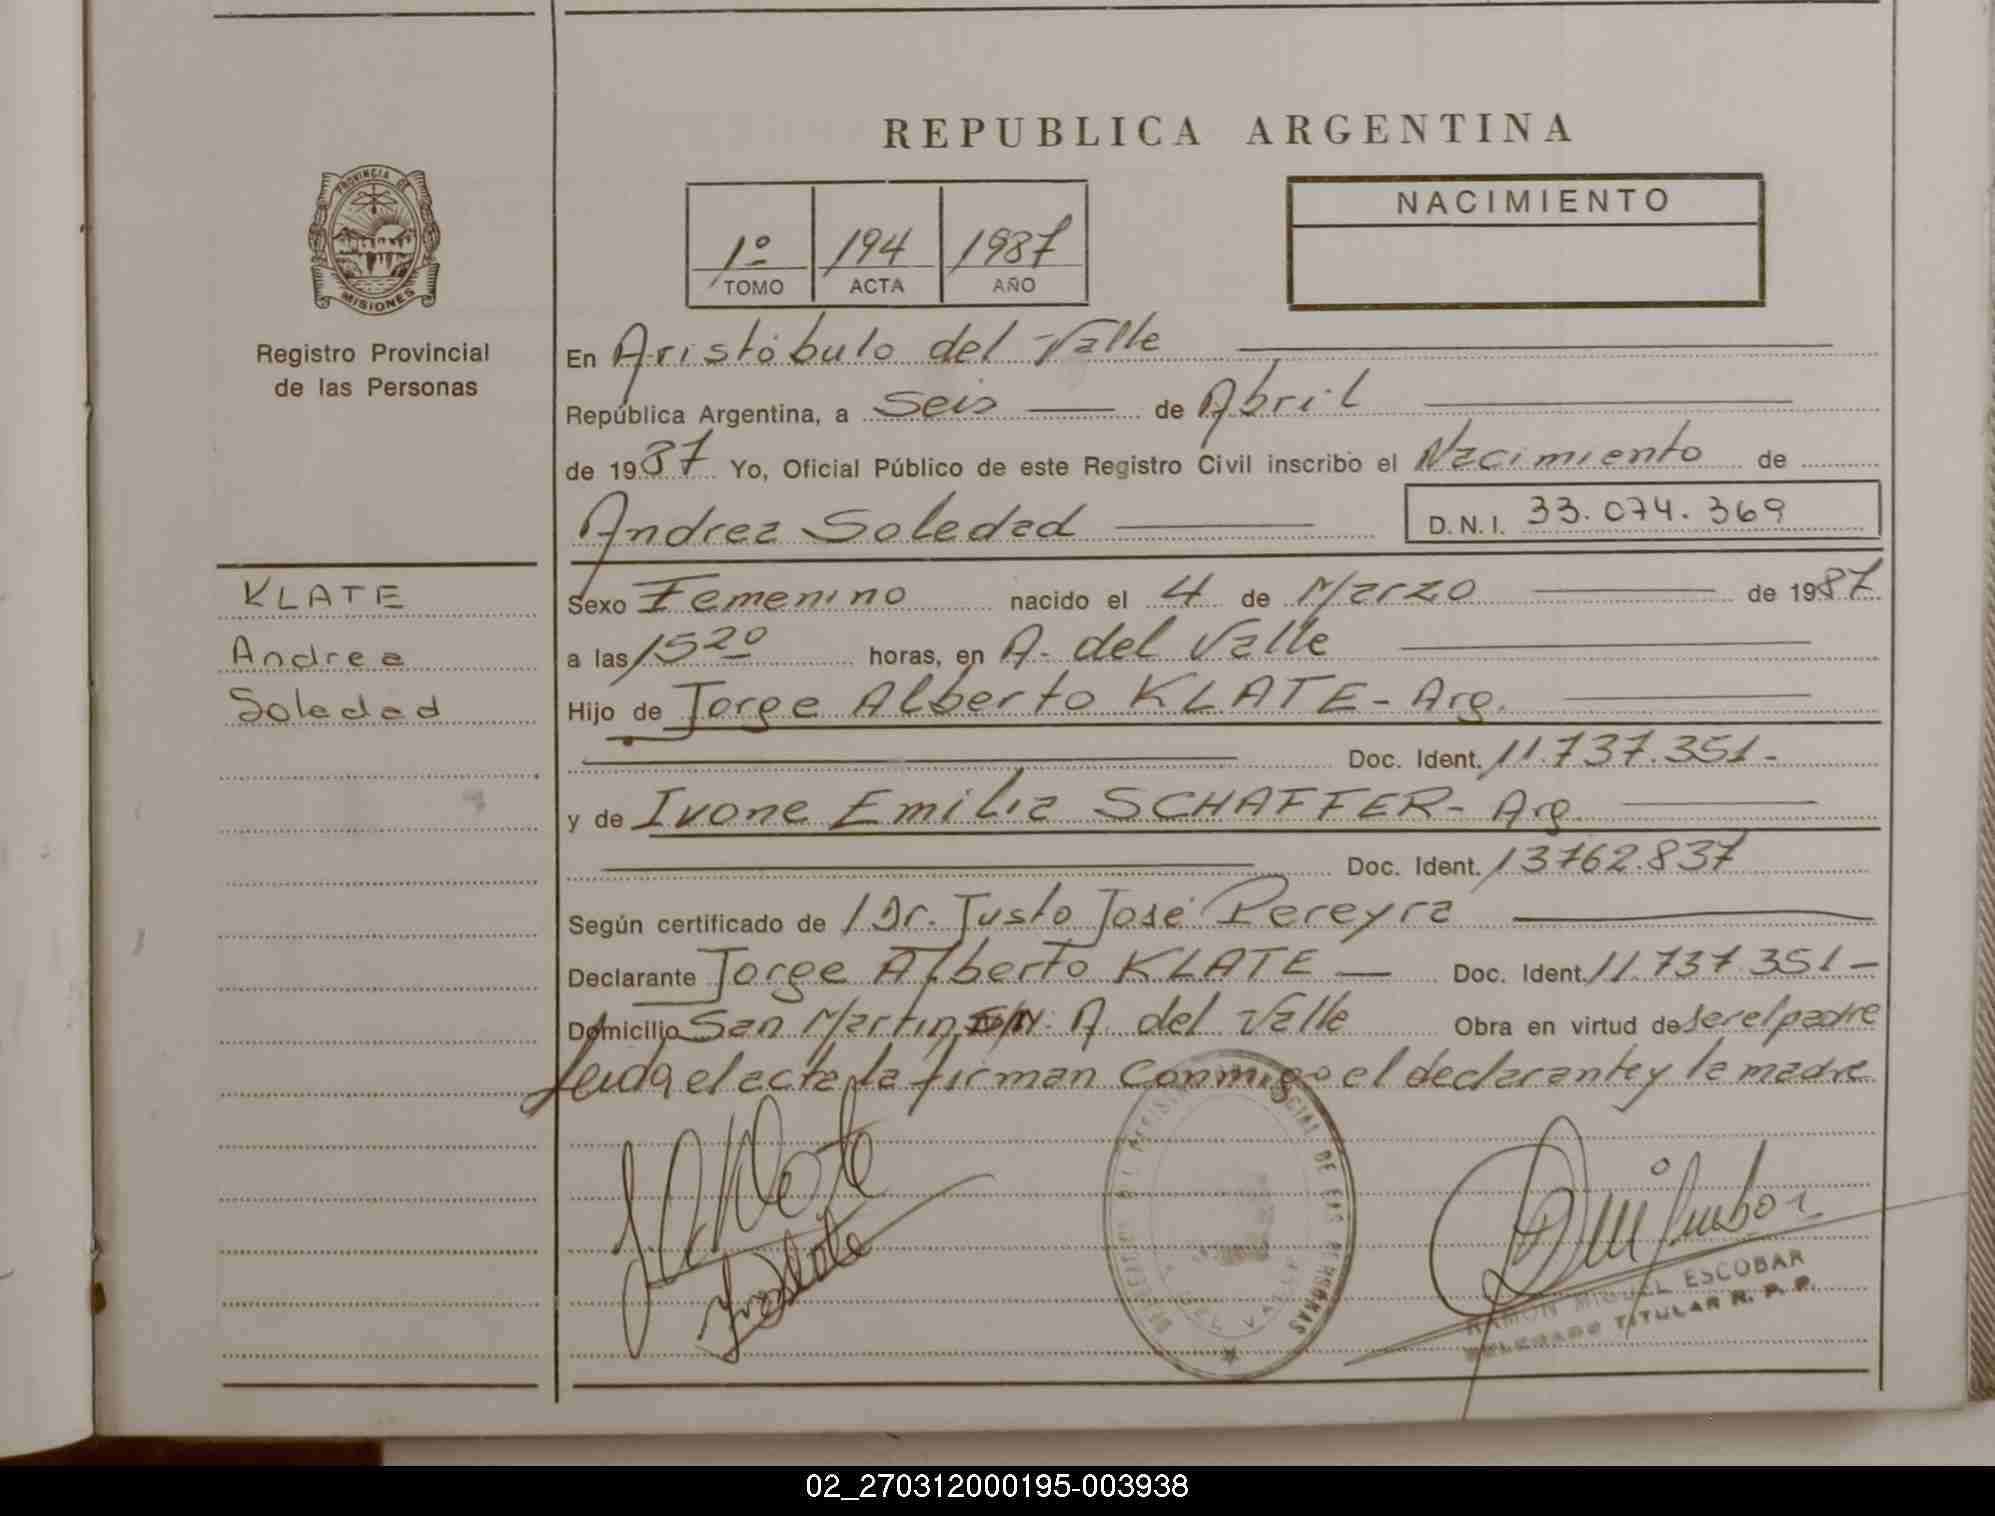 REPUBLICA ARGENTINA
PROVINCIA DE
MISIONES
Registro Provincial
de las Personas
1º 194 1987
TOMO ACTA AÑO
NACIMIENTO
En Aristóbulo del Valle
República Argentina, a Seis de Abril
de 1987 Yo, Oficial Público de este Registro Civil inscribo el Nacimiento de
Andrea Soledad D.N.I. 33.074.369
KLATE
Andrea
Soledad
Sexo Femenino nacido el 4 de Marzo de 1987
a las 15 20 horas, en A. del Valle
Hijo de Jorge Alberto KLATE - Arg.
Doc. Ident. 11.737.351-
y de Ivone Emilia SCHAFFER - Arg.
Doc. Ident. 13762.837
Según certificado de Dr. Justo José Pereyra
Declarante Jorge Alberto KLATE Doc. Ident. 11.737.351-
Domicilio San Martin S/N. A. del Valle Obra en virtud de ser el padre
leida el acta la firman conmigo el declarante y la madre
DE LAS PERSONAS
DEL VALLE
RAMON MIGUEL ESCOBAR
DELEGADO TITULAR R. P. P.
02_270312000195-003938